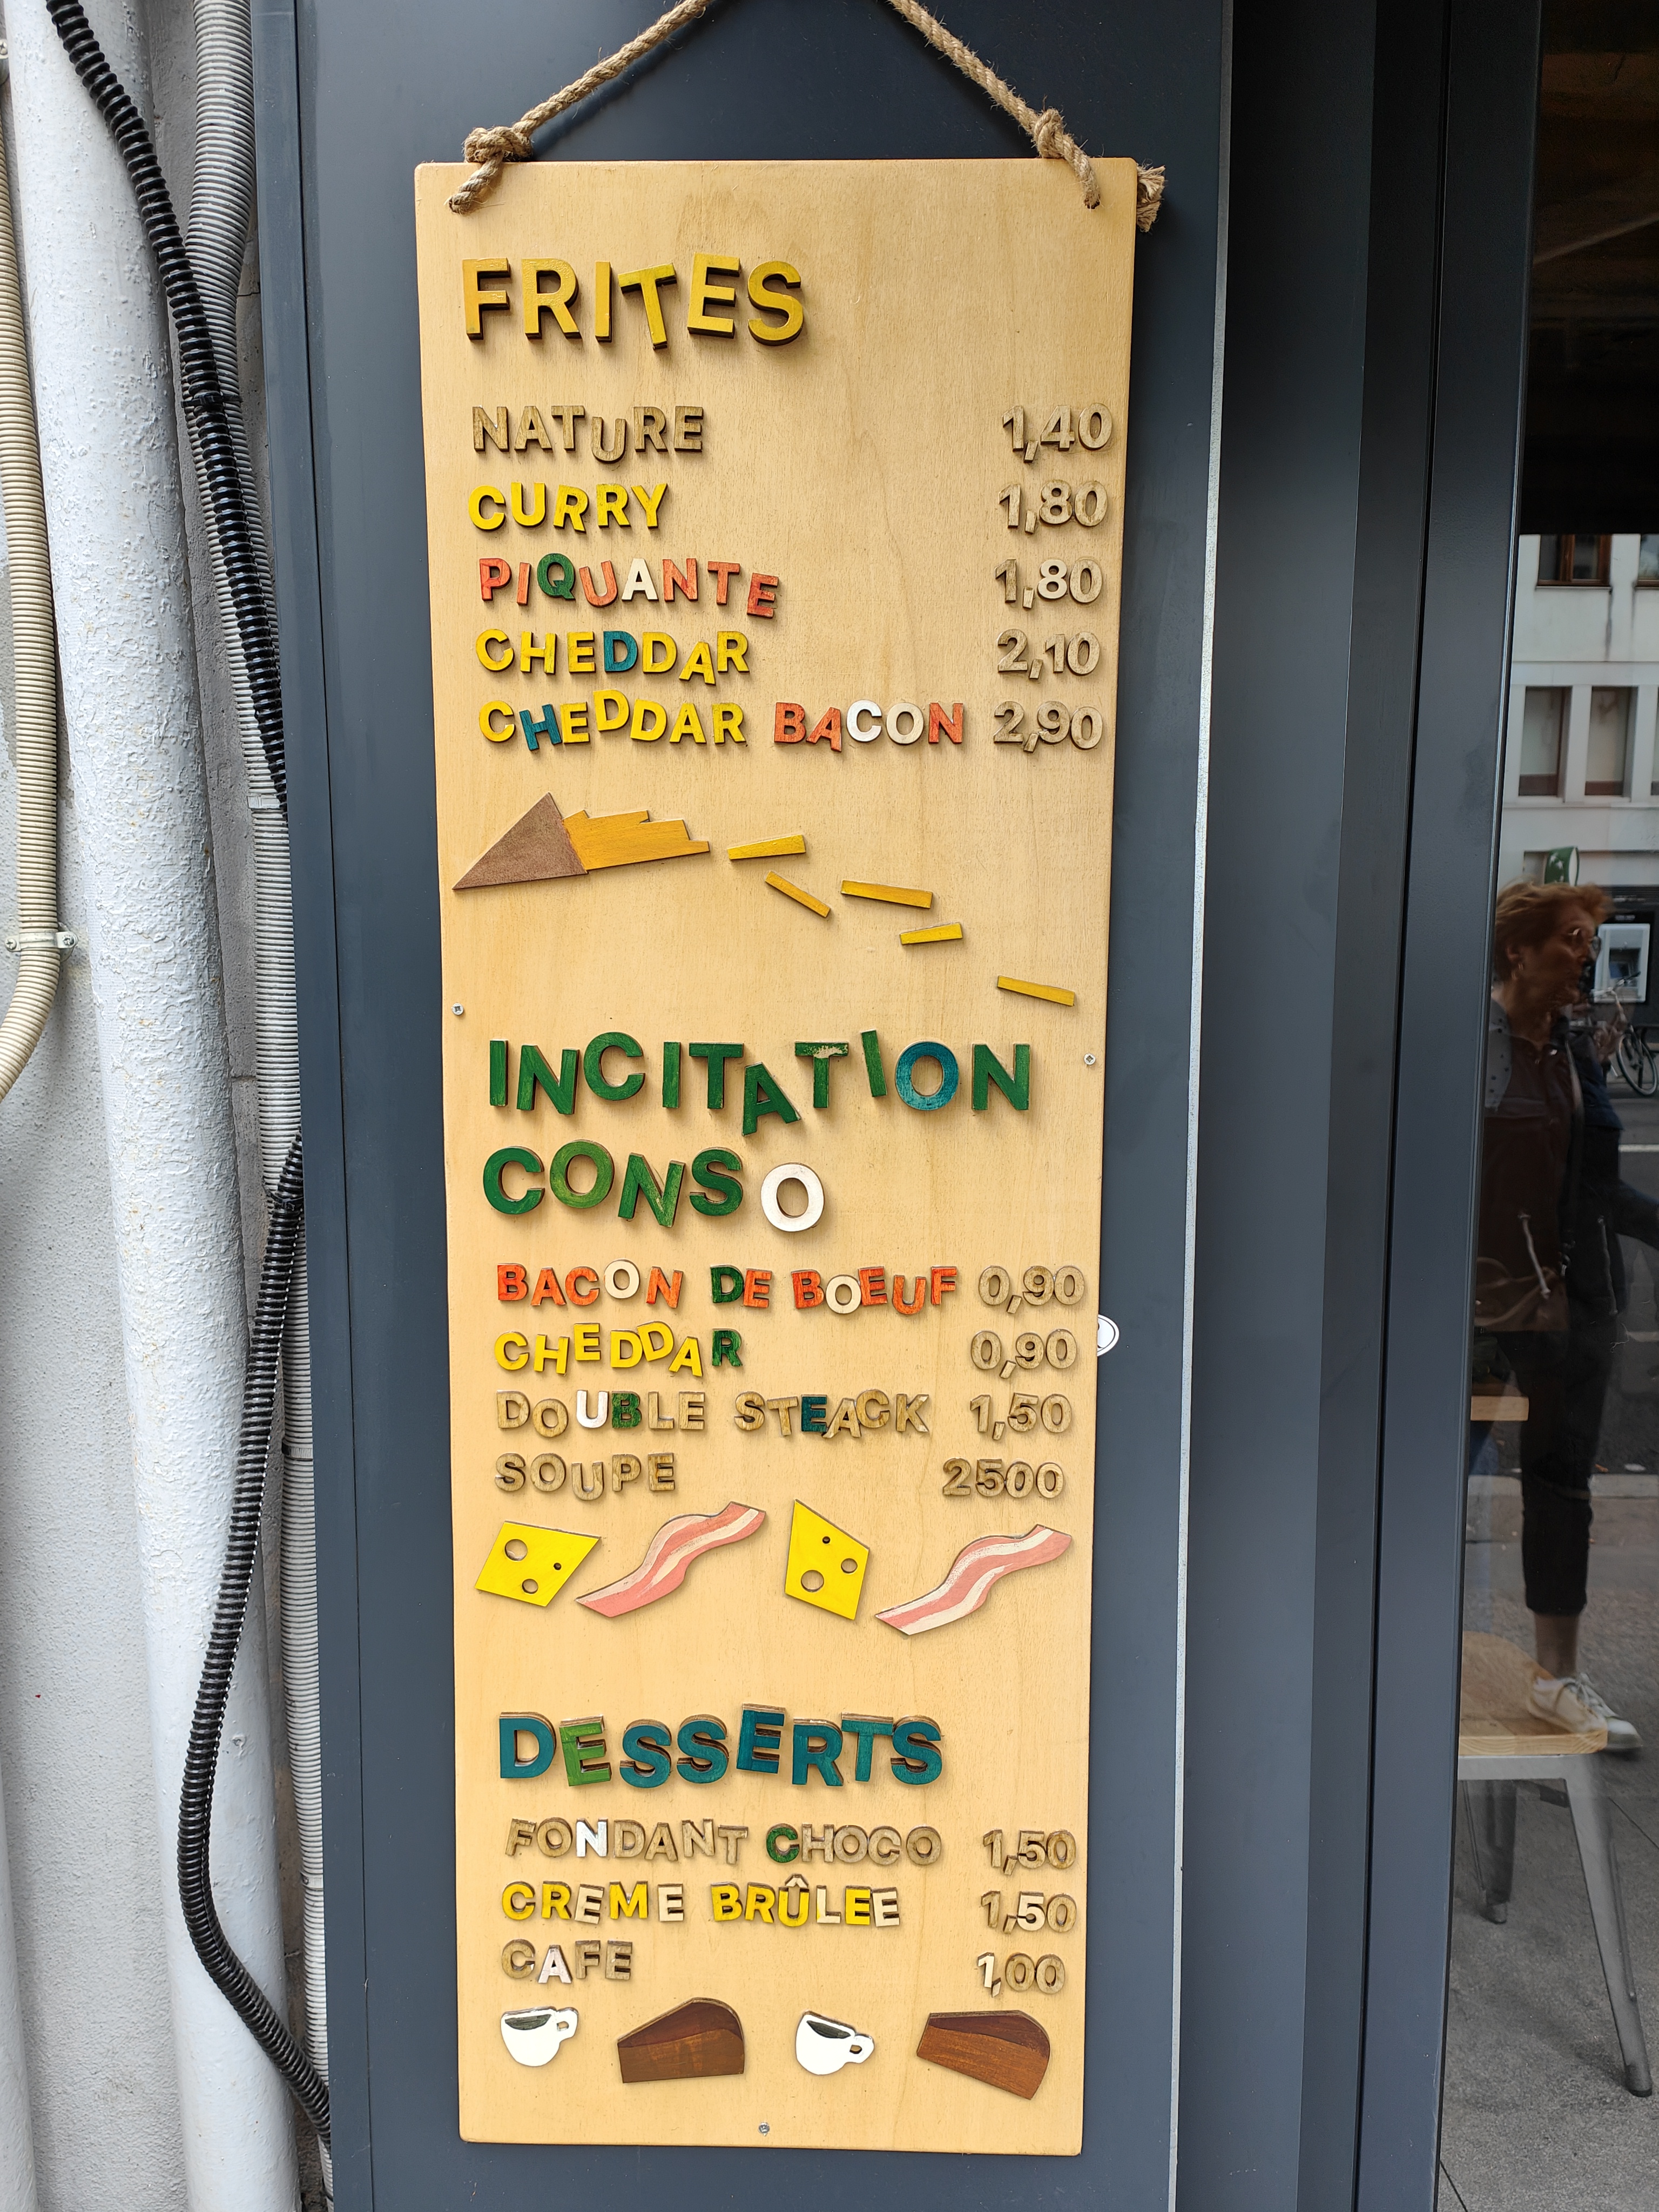 FRITES
NATURE 1,40
CURRY 1,80
PIQUANTE 1,80
CHEDDAR 2,10
CHEDDAR BACON 2,90
INCITATION
CONSO
BACON DE BOEUF 0,90
CHEDDAR 0,90
DOUBLE STEACK 1,50
SOUPE 2500
DESSERTS
FONDANT CHOCO 1,50
CREME BRÛLEE 1,50
CAFE 1,00